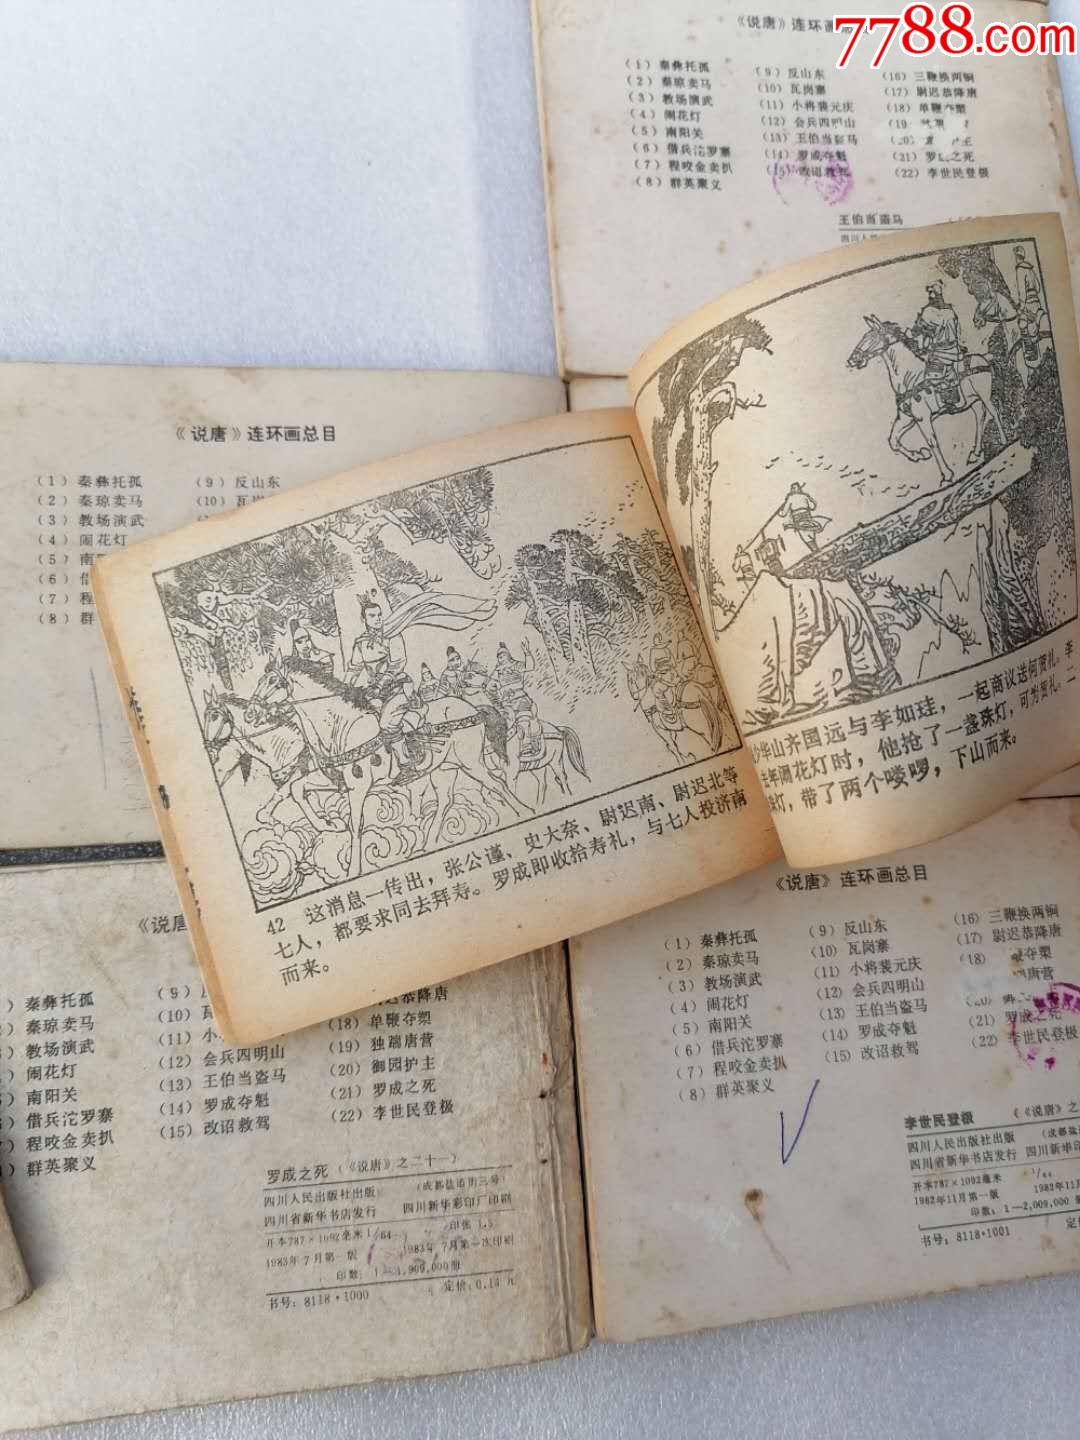 7788.com
《说唐》连环画总
（1）秦彝托孤
（2）秦琼卖马
（3）教场演武
（4）闹花灯
（5）南阳关
（6）借兵沱罗寨
（7）程咬金卖扒
（8）群英聚义
（9）反山东
（10）瓦岗寨
（11）小将裴元庆
（12）会兵四明山
（13）王伯当盗马
（14）罗成夺魁
（15）改诏救驾
（16）三鞭换两锏
（17）尉迟恭降唐
（18）单鞭夺槊
（19
（20）
（21）罗成之死
（22）李世民登极
王伯当盗马
《说唐》连环画总目
（1）秦彝托孤
（2）秦琼卖马
（3）教场演武
（4）闹花灯
（5）南
（6）借
（7）程
（8）群
（9）反山东
（10）瓦岗
42 这消息一传出，张公谨、史大奈、尉迟南、尉迟北等
七人，都要求同去拜寿。罗成即收拾寿礼，与七人投济南
而来。
少华山齐国远与李如珪，一起商议送何贺礼。李
去年闹花灯时，他抢了一盏珠灯，可为贺礼。二
珠灯，带了两个喽啰，下山而来。
《说唐
）秦彝托孤
）秦琼卖马
）教场演武
）闹花灯
）南阳关
）借兵沱罗寨
）程咬金卖扒
）群英聚义
（9）
（10）瓦
（11）小
（12）会兵四明山
（13）王伯当盗马
（14）罗成夺魁
（15）改诏救驾
迟恭降唐
（18）单鞭夺槊
（19）独踹唐营
（20）御园护主
（21）罗成之死
（22）李世民登极
罗成之死（《说唐》之二十一）
四川人民出版社出版 （成都盐道街三号）
四川省新华书店发行 四川新华彩印厂印刷
开本787×1092毫米 1/64 印张 1.5
1983年7月第一版 1983年7月第一次印刷
印数：1—1,909,000册
书号：8118·1000 定价：0.14元
《说唐》连环画总目
（1）秦彝托孤
（2）秦琼卖马
（3）教场演武
（4）闹花灯
（5）南阳关
（6）借兵沱罗寨
（7）程咬金卖扒
（8）群英聚义
（9）反山东
（10）瓦岗寨
（11）小将裴元庆
（12）会兵四明山
（13）王伯当盗马
（14）罗成夺魁
（15）改诏救驾
（16）三鞭换两锏
（17）尉迟恭降唐
（18） 鞭夺槊
唐营
（20）
（21）罗成之死
（22）李世民登极
李世民登极 （《说唐》之
四川人民出版社出版 （成都盐
四川省新华书店发行 四川新华印
开本787×1092毫米 1/64
1982年11月第一版 1982年11月
印数：1—2,009,000
书号：8118·1001 定